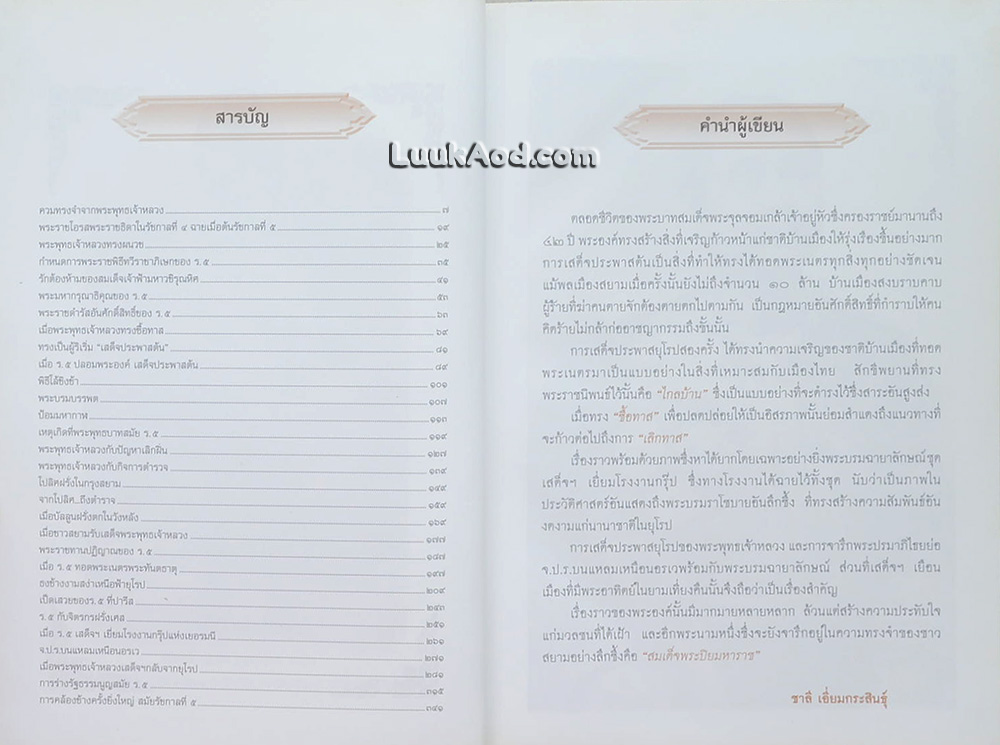 สารบัญ
ความทรงจำจากพระพุทธเจ้าหลวง ๗
พระราชโอรสพระราชธิดาในรัชกาลที่ ๔ ฉายเมื่อต้นรัชกาลที่ ๕ ๑๙
พระพุทธเจ้าหลวงทรงผนวช ๒๕
กำหนดการพระราชพิธีทวีราชาภิเษกของ ร.๕ ๓๕
รักต้องห้ามของสมเด็จเจ้าฟ้ามหาวชิรุณหิศ ๔๑
พระมหากรุณาธิคุณของ ร.๕ ๕๓
พระราชดำรัสอันศักดิ์สิทธิ์ของ ร.๕ ๖๓
เมื่อพระพุทธเจ้าหลวงทรงซื้อทาส ๖๙
ทรงเป็นผู้ริเริ่ม "เสด็จประพาสต้น" ๘๑
เมื่อ ร.๕ ปลอมพระองค์ เสด็จประพาสต้น ๘๙
พิธีโล้ชิงช้า ๑๐๑
พระบรมบรรพต ๑๐๗
ป้อมมหากาฬ ๑๑๓
เหตุเกิดที่พระพุทธบาทสมัย ร.๕ ๑๑๙
พระพุทธเจ้าหลวงกับปัญหาเลิกฝิ่น ๑๒๗
พระพุทธเจ้าหลวงกับกิจการตำรวจ ๑๓๙
โปลิศฝรั่งในกรุงสยาม ๑๔๙
จากโปลิศ..ถึงตำรวจ ๑๕๙
เมื่อบัลลูนฝรั่งตกในวังหลัง ๑๖๙
เมื่อชาวสยามรับเสด็จพระพุทธเจ้าหลวง ๑๗๗
พระราชทานปฏิญาณของ ร.๕ ๑๘๗
เมื่อ ร.๕ ทอดพระเนตรพระทันตธาตุ ๑๙๗
ธงช้างงามสง่าเหนือฟ้ายุโรป ๒๐๙
เป็ดเสวยของร.๕ ที่ปารีส ๒๔๓
ร.๕ กับจิตรกรฝรั่งเศส ๒๕๑
เมื่อ ร.๕ เสด็จฯ เยี่ยมโรงงานกรุ๊ปแห่งเยอรมนี ๒๖๑
จ.ป.ร.บนแหลมเหนือนอรเว ๒๗๑
เมื่อพระพุทธเจ้าหลวงเสด็จฯกลับจากยุโรป ๒๘๑
การร่างรัฐธรรมนูญสมัย ร.๕ ๓๑๕
การคล้องช้างครั้งยิ่งใหญ่ สมัยรัชกาลที่ ๕ ๓๔๑
LuukAod.com
คำนำผู้เขียน
ตลอดชีวิตของพระบาทสมเด็จพระจุลจอมเกล้าเจ้าอยู่หัวซึ่งครองราชย์มานานถึง
๔๒ ปี พระองค์ทรงสร้างสิ่งที่เจริญก้าวหน้าแก่ชาติบ้านเมืองให้รุ่งเรืองขึ้นอย่างมาก
การเสด็จประพาสต้นเป็นสิ่งที่ทำให้ทรงได้ทอดพระเนตรทุกสิ่งทุกอย่างชัดเจน
แม้พลเมืองสยามเมื่อครั้งนั้นยังไม่ถึงจำนวน ๑๐ ล้าน บ้านเมืองสงบราบคาบ
ผู้ร้ายที่ฆ่าคนตายจักต้องตายตกไปตามกัน เป็นกฎหมายอันศักดิ์สิทธิ์ที่กำราบให้คน
คิดร้ายไม่กล้าก่ออาชญากรรมถึงขั้นนั้น
การเสด็จประพาสยุโรปสองครั้ง ได้ทรงนำความเจริญของชาติบ้านเมืองที่ทอด
พระเนตรมาเป็นแบบอย่างในสิ่งที่เหมาะสมกับเมืองไทย สักขีพยานที่ทรง
พระราชนิพนธ์ไว้นั้นคือ "ไกลบ้าน" ซึ่งเป็นแบบอย่างที่จะดำรงไว้ซึ่งสาระอันสูงส่ง
เมื่อทรง "ซื้อทาส" เพื่อปลดปล่อยให้เป็นอิสรภาพนั้นย่อมสำแดงถึงแนวทางที่
จะก้าวต่อไปถึงการ "เลิกทาส"
เรื่องราวพร้อมด้วยภาพซึ่งหาได้ยากโดยเฉพาะอย่างยิ่งพระบรมฉายาลักษณ์ชุด
เสด็จฯ เยี่ยมโรงงานกรุ๊ป ซึ่งทางโรงงานได้ฉายไว้ทั้งชุด นับว่าเป็นภาพใน
ประวัติศาสตร์อันแสดงถึงพระบรมราโชบายอันลึกซึ้ง ที่ทรงสร้างความสัมพันธ์อัน
งดงามแก่นานาชาติในยุโรป
การเสด็จประพาสยุโรปของพระพุทธเจ้าหลวง และการจารึกพระปรมาภิไธยย่อ
จ.ป.ร.บนแหลมเหนือนอรเวพร้อมกับพระบรมฉายาลักษณ์ ส่วนที่เสด็จฯ เยือน
เมืองที่มีพระอาทิตย์ในยามเที่ยงคืนนั้นจึงถือว่าเป็นเรื่องสำคัญ
เรื่องราวของพระองค์นั้นมีมากมายหลายหลาก ล้วนแต่สร้างความประทับใจ
แก่มวลชนที่ได้เฝ้า และอีกพระนามหนึ่งซึ่งจะยังจารึกอยู่ในความทรงจำของชาว
สยามอย่างลึกซึ้งคือ "สมเด็จพระปิยมหาราช"
ชาลี เอี่ยมกระสินธุ์